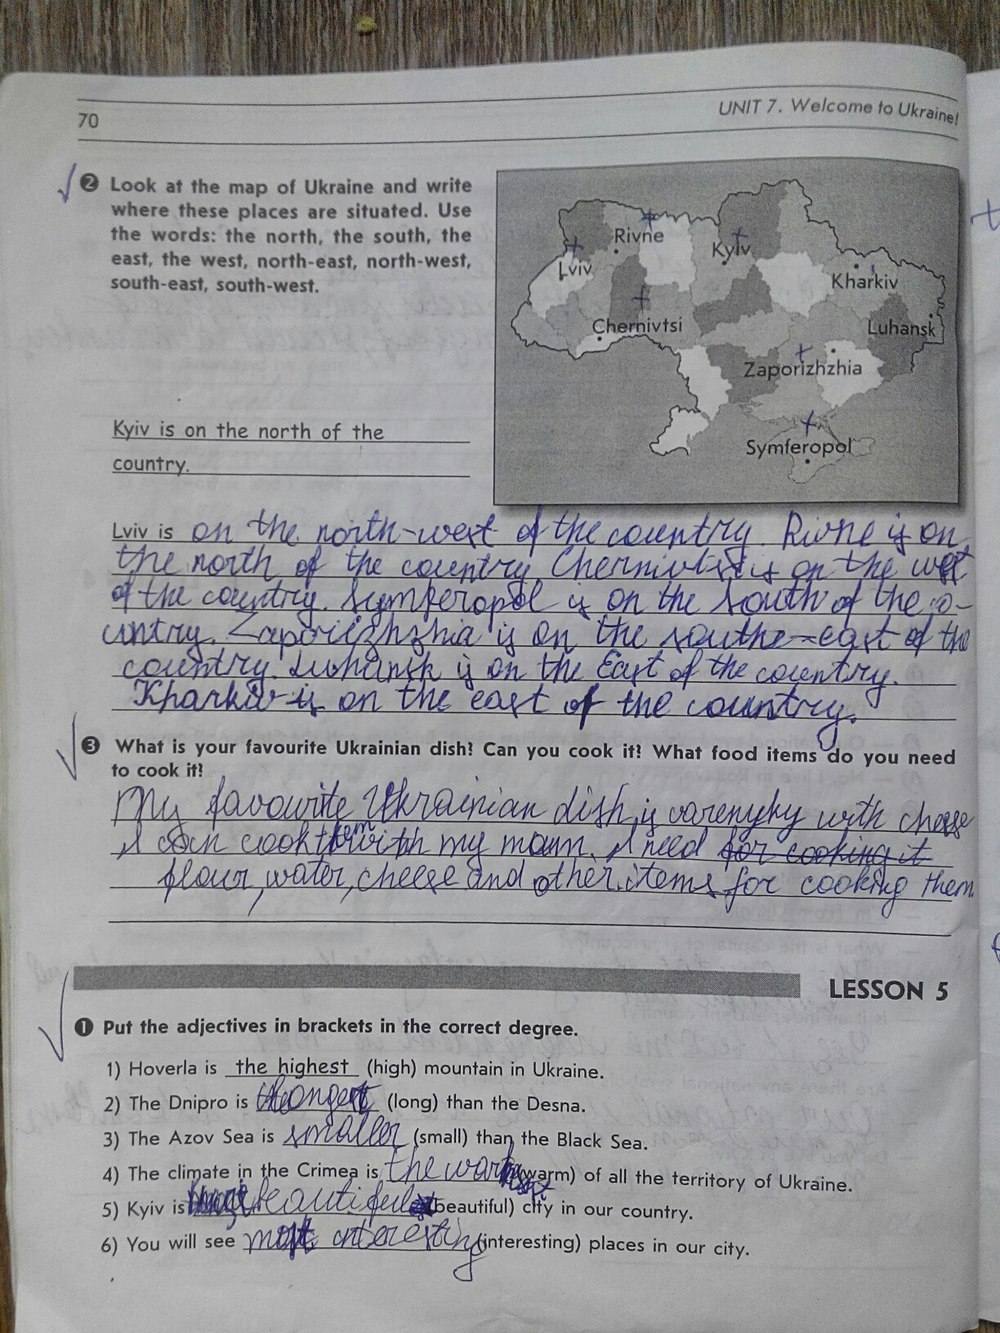 70
UNIT 7. Welcome to Ukraine!
2 Look at the map of Ukraine and write
where these places are situated. Use
the words: the north, the south, the
east, the west, north-east, north-west,
south-east, south-west.
Rivne
Kyiv
Lviv
Kharkiv
Chernivtsi
Luhansk
Zaporizhzhia
Symferopol
Kyiv is on the north of the
country.
Lviv is on the north-west of the country. Rivne is on
the north of the country. Chernivtsi is on the west
of the country. Symferopol is on the south of the co-
untry. Zaporizhzhia is on the southe-east of the
country. Luhansk is on the East of the country.
Kharkiv is on the east of the country.
3 What is your favourite Ukrainian dish? Can you cook it? What food items do you need
to cook it?
My favourite Ukrainian dish is varenyky with cheese
I can cook them with my mum. I need for cooking it
flour, water, cheese and other items for cooking them
LESSON 5
1 Put the adjectives in brackets in the correct degree.
1) Hoverla is the highest (high) mountain in Ukraine.
2) The Dnipro is (long) than the Desna.
3) The Azov Sea is smaller (small) than the Black Sea.
4) The climate in the Crimea is the (warm) of all the territory of Ukraine.
5) Kyiv is beautiful (beautiful) city in our country.
6) You will see most interesting (interesting) places in our city.